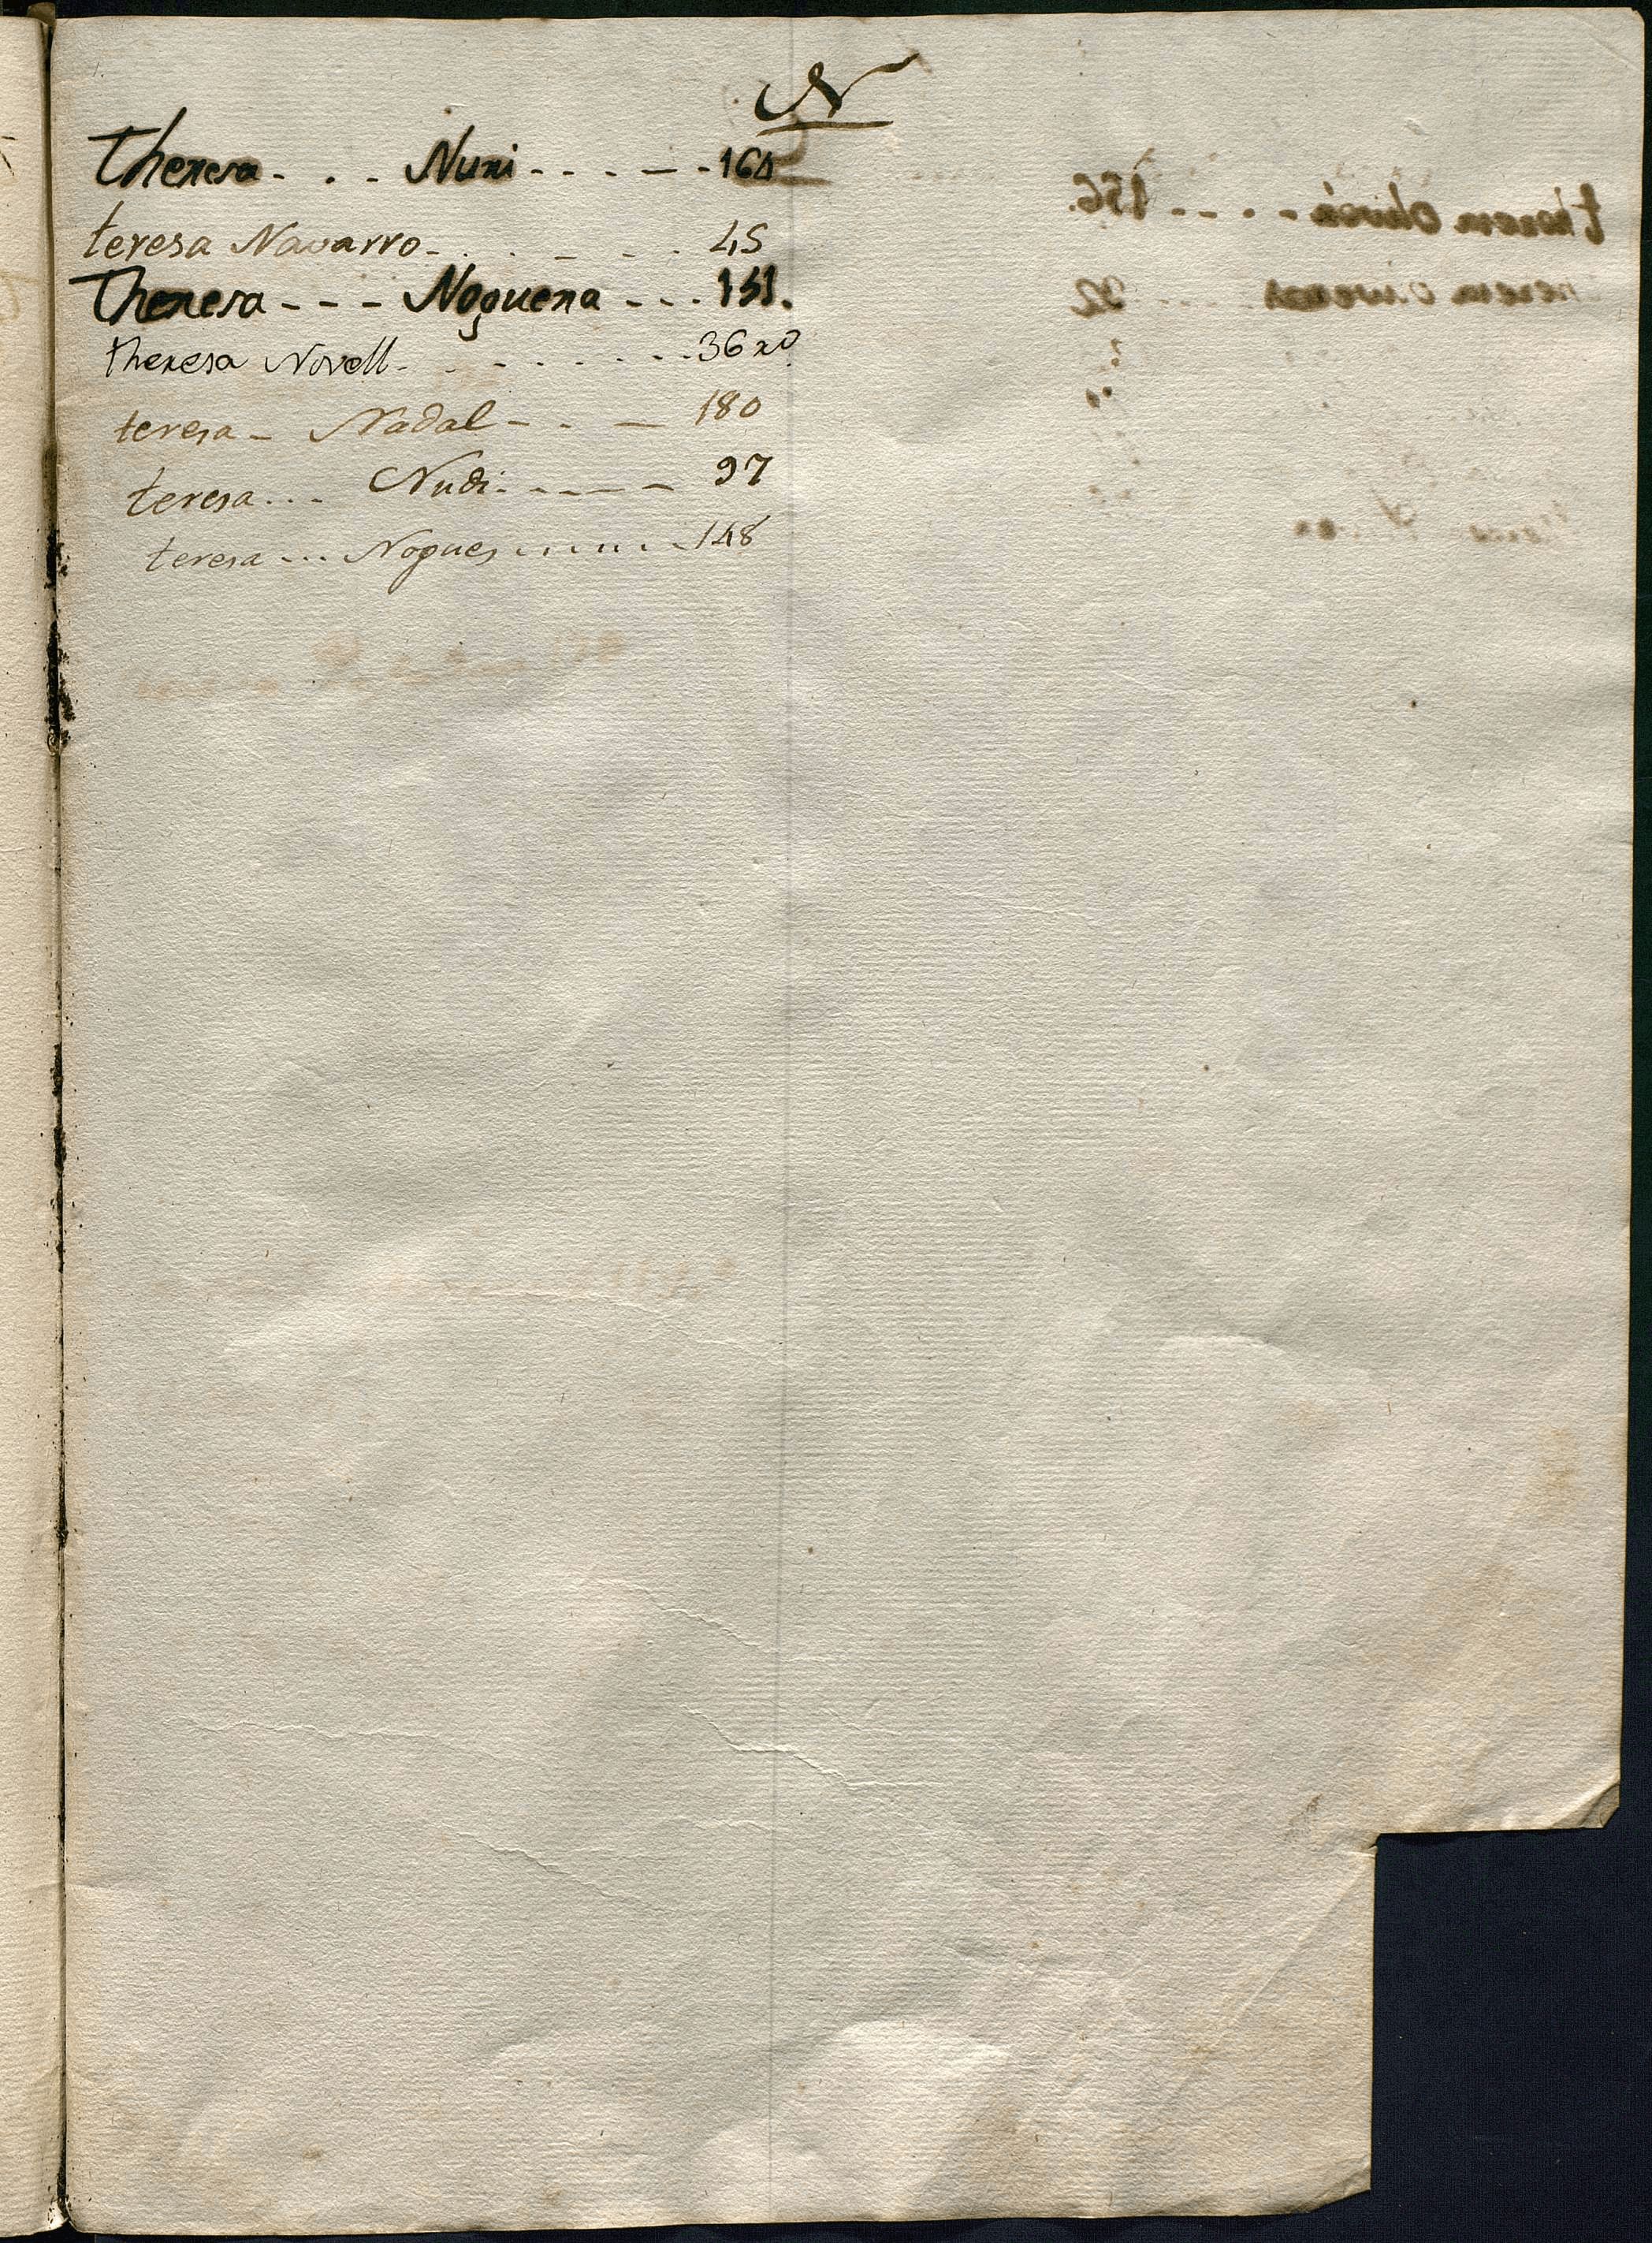 N
Theresa - . - Nuri - - . - - - 164
teresa Navarro - . . - . - . 45
Theresa - - - Noguera - - . 151.
Theresa Novell - . - - . - - . 36 ro
teresa - Nadal - . - 180
teresa . . - Nudi - - - - - 97
teresa - . . Nogues . . . . . . - 148